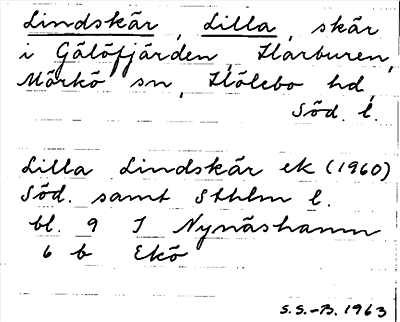 Lindskär, Lilla, skär
i Gälöfjärden, Harburen,
Mörkö sn, Hölebo hd,
Söd. l.
Lilla Lindskär ek (1960)
Söd. samt Sthlm l.
bl. 9 I Nynäshamn
6 b Ekö
S.S.-B. 1963